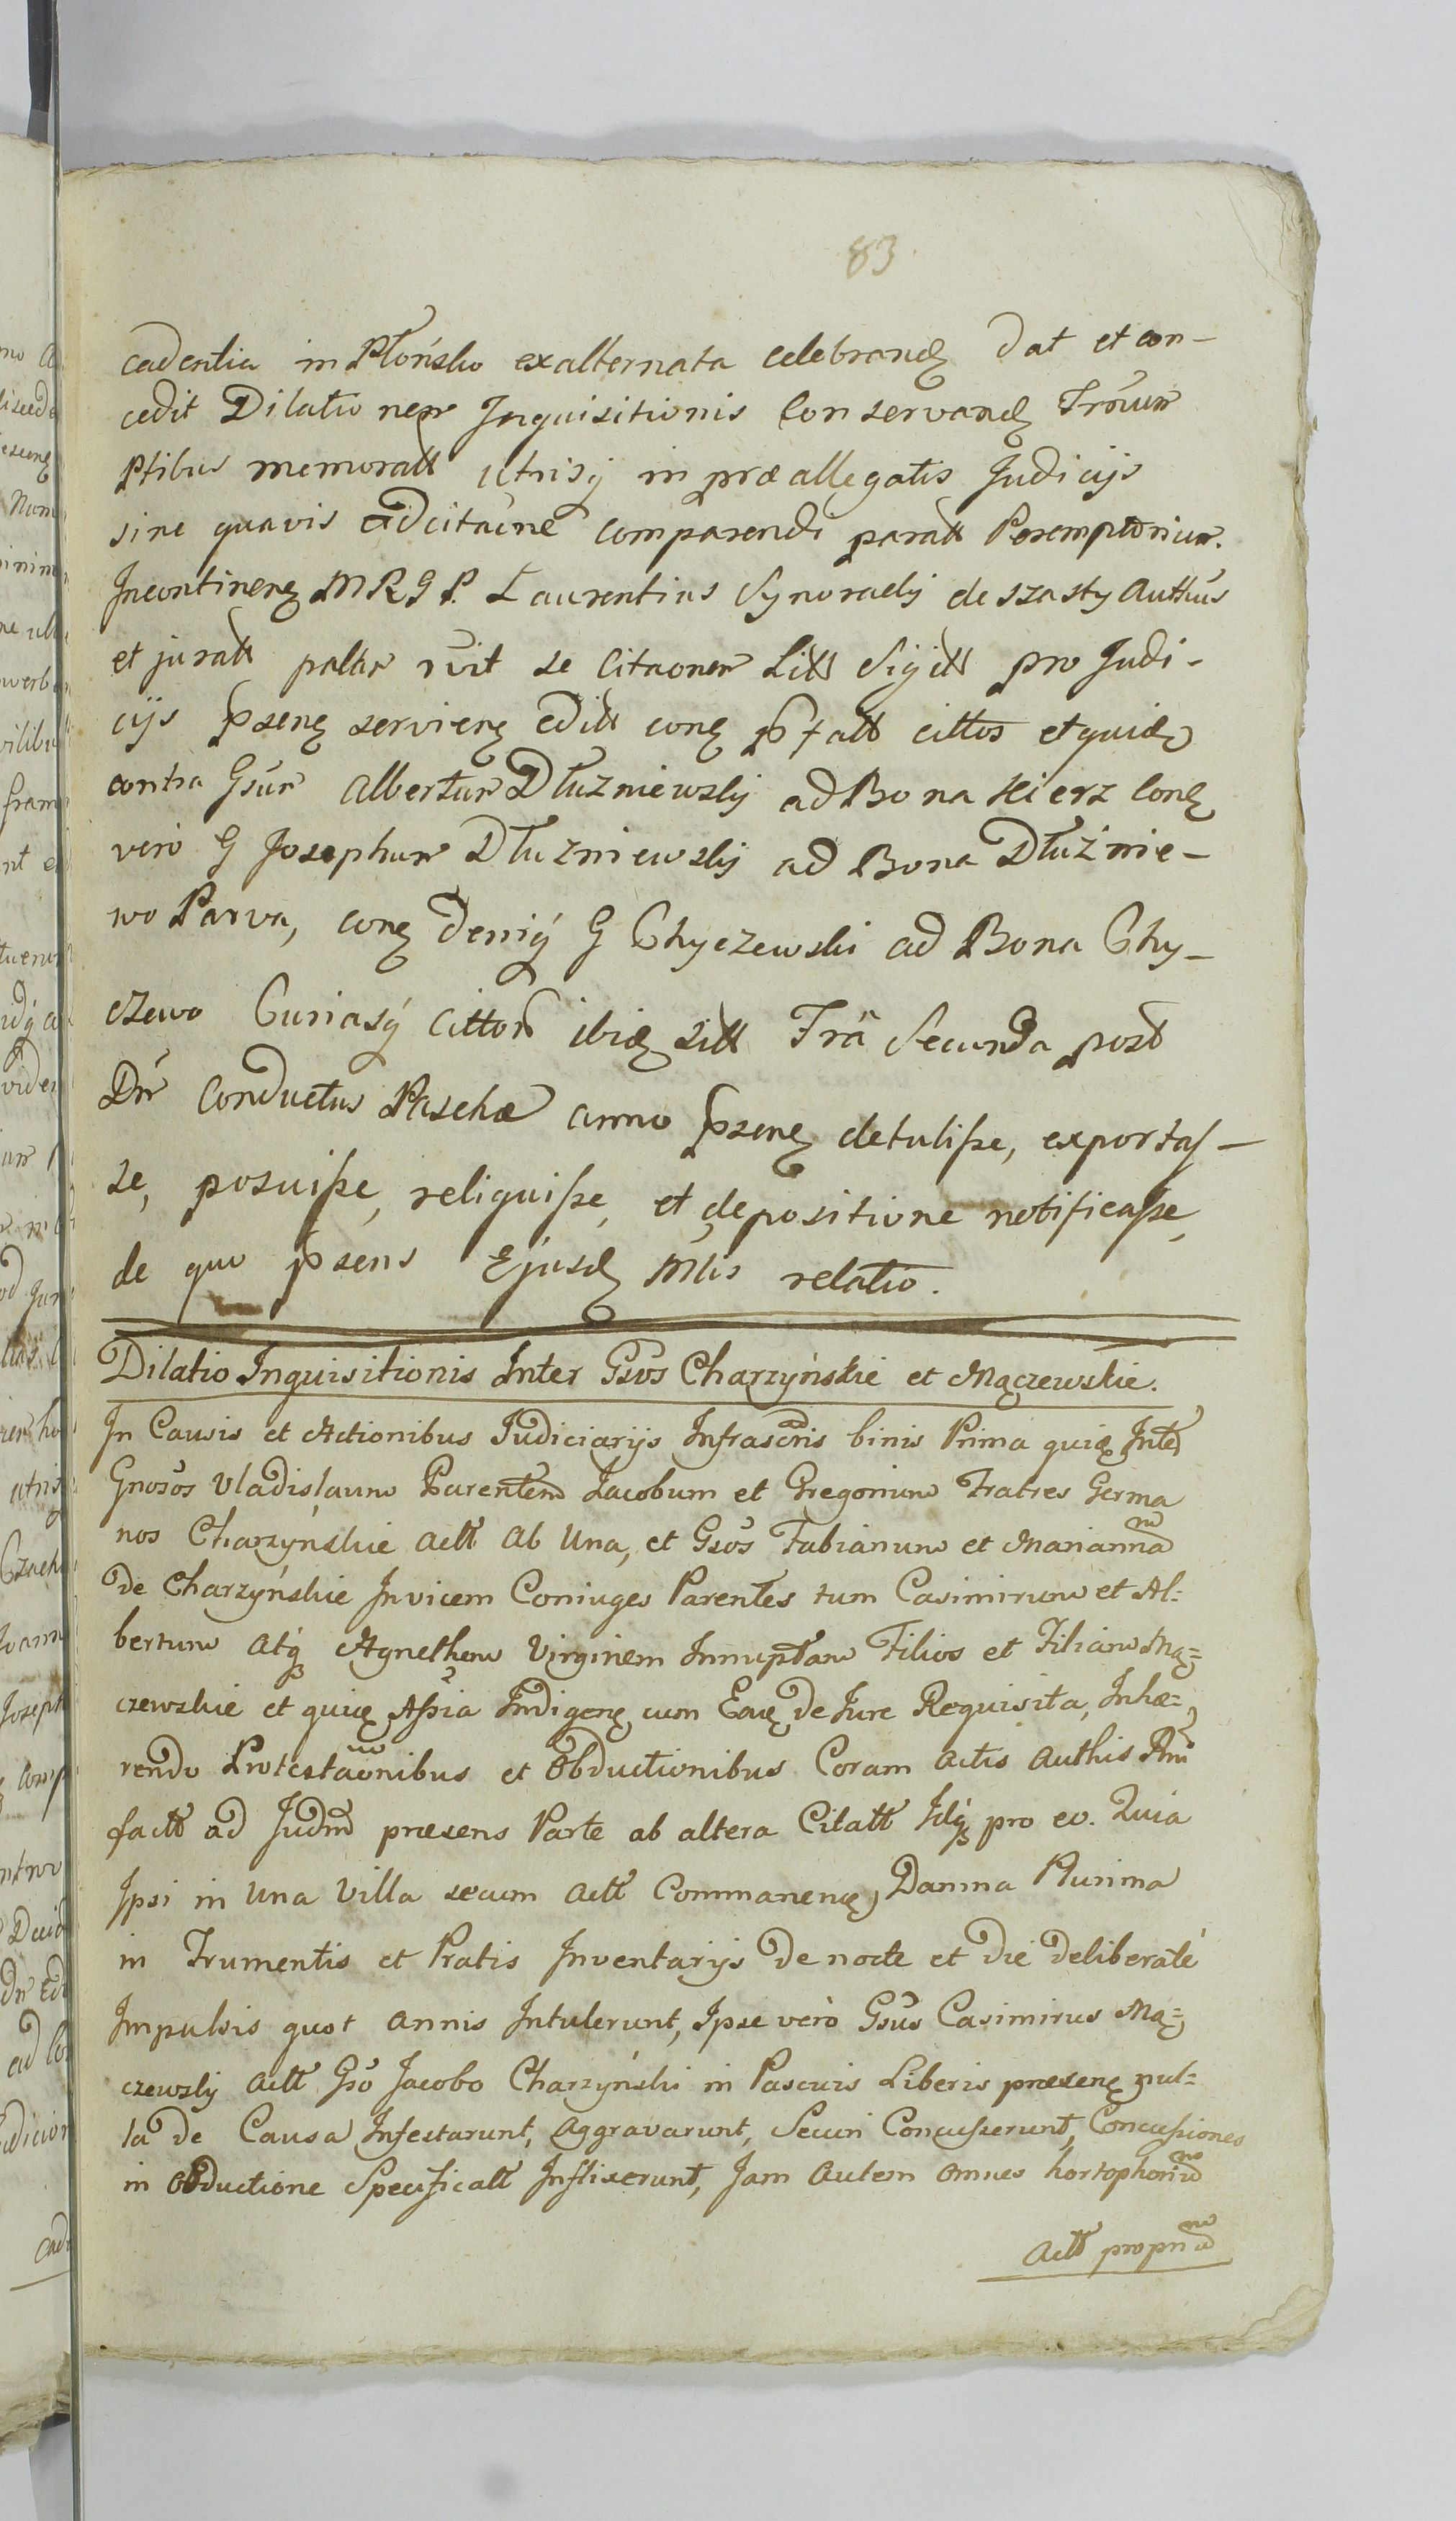 83
cadentia in Płońsko exalternata celebranḍ dat et con-
cedit Dilationem Inquisitionis Conservanḍ Trnum
Ptibus memoratt utrisq in præallegatis Judicijs
sine quavis adcitaõne comparendi paratt Peremptorium.
Incontinenṭ MRGP. Laurentius Synoradzj de szasty Autthus
et juratt paltr rvit se Citaonem Litt Sigitt pro Judi-
cijs pseñ servieñ editt conṭ pfatt cittos et quid
contra Gsum Albertum Dłuzniewskj ad Bona Kierz Conṭ
vero G Josephum Dłuzniewskj ad Bona Dłużnie-
wo Parva, conṭ deniq G Chyczewski ad Bona Chy-
czewo Curiasq cittor ibid sitt Fria Secunda post
Dñ Conductus Paschæ anno pseñ detulisse, exportas-
se, posuisse, reliquisse, et depositione notificasse,
de quo psens Ejusd Mlis relatio.
Dilatio Inquisitionis Inter Gsos Charzyńskie et Mączewskie.
In Causis et Actionibus Judiciarijs Infrascris binis Prima quid Inter
Gnosos Vladislaum Parentem Jacobum et Gregorium Fratres Germa
nos Charzyńskie Actt Ab Una, et Gsos Fabianum et Mariannam
de Charzyńskie Invicem Coniuges Parentes tum Casimirum et Al=
bertum Atq Agnethem Virginem Innuptam Filios et Filiam Mą=
czewskie et quid Assia Indigenṭ cum Eorṭ de Jure Requisita, Inhæ=
rendo Protestaõnibus et Obductionibus Coram Actis Authis Rni
factt ad Judm præsens Parte ab altera Citatt Idq pro eo. Quia
Ipsi in Una Villa secum Actt Commanenṭ, Damna Plurima
in Frumentis et Pratis Inventarijs de nocte et die deliberaté
Impulsis quot annis Intulerunt, Ipse verò Gsus Casimirus Mą=
czewskj Actt Gso Jacobo Charzyński in Pascuis Liberis præsenṭ nul=
la de Causa Infestarunt, Aggravarunt, Securi Concusserunt, Concussiones
in Obductione Specificatt Inflixerunt, Jam Autem Omnes hortophorum
Actt proprium